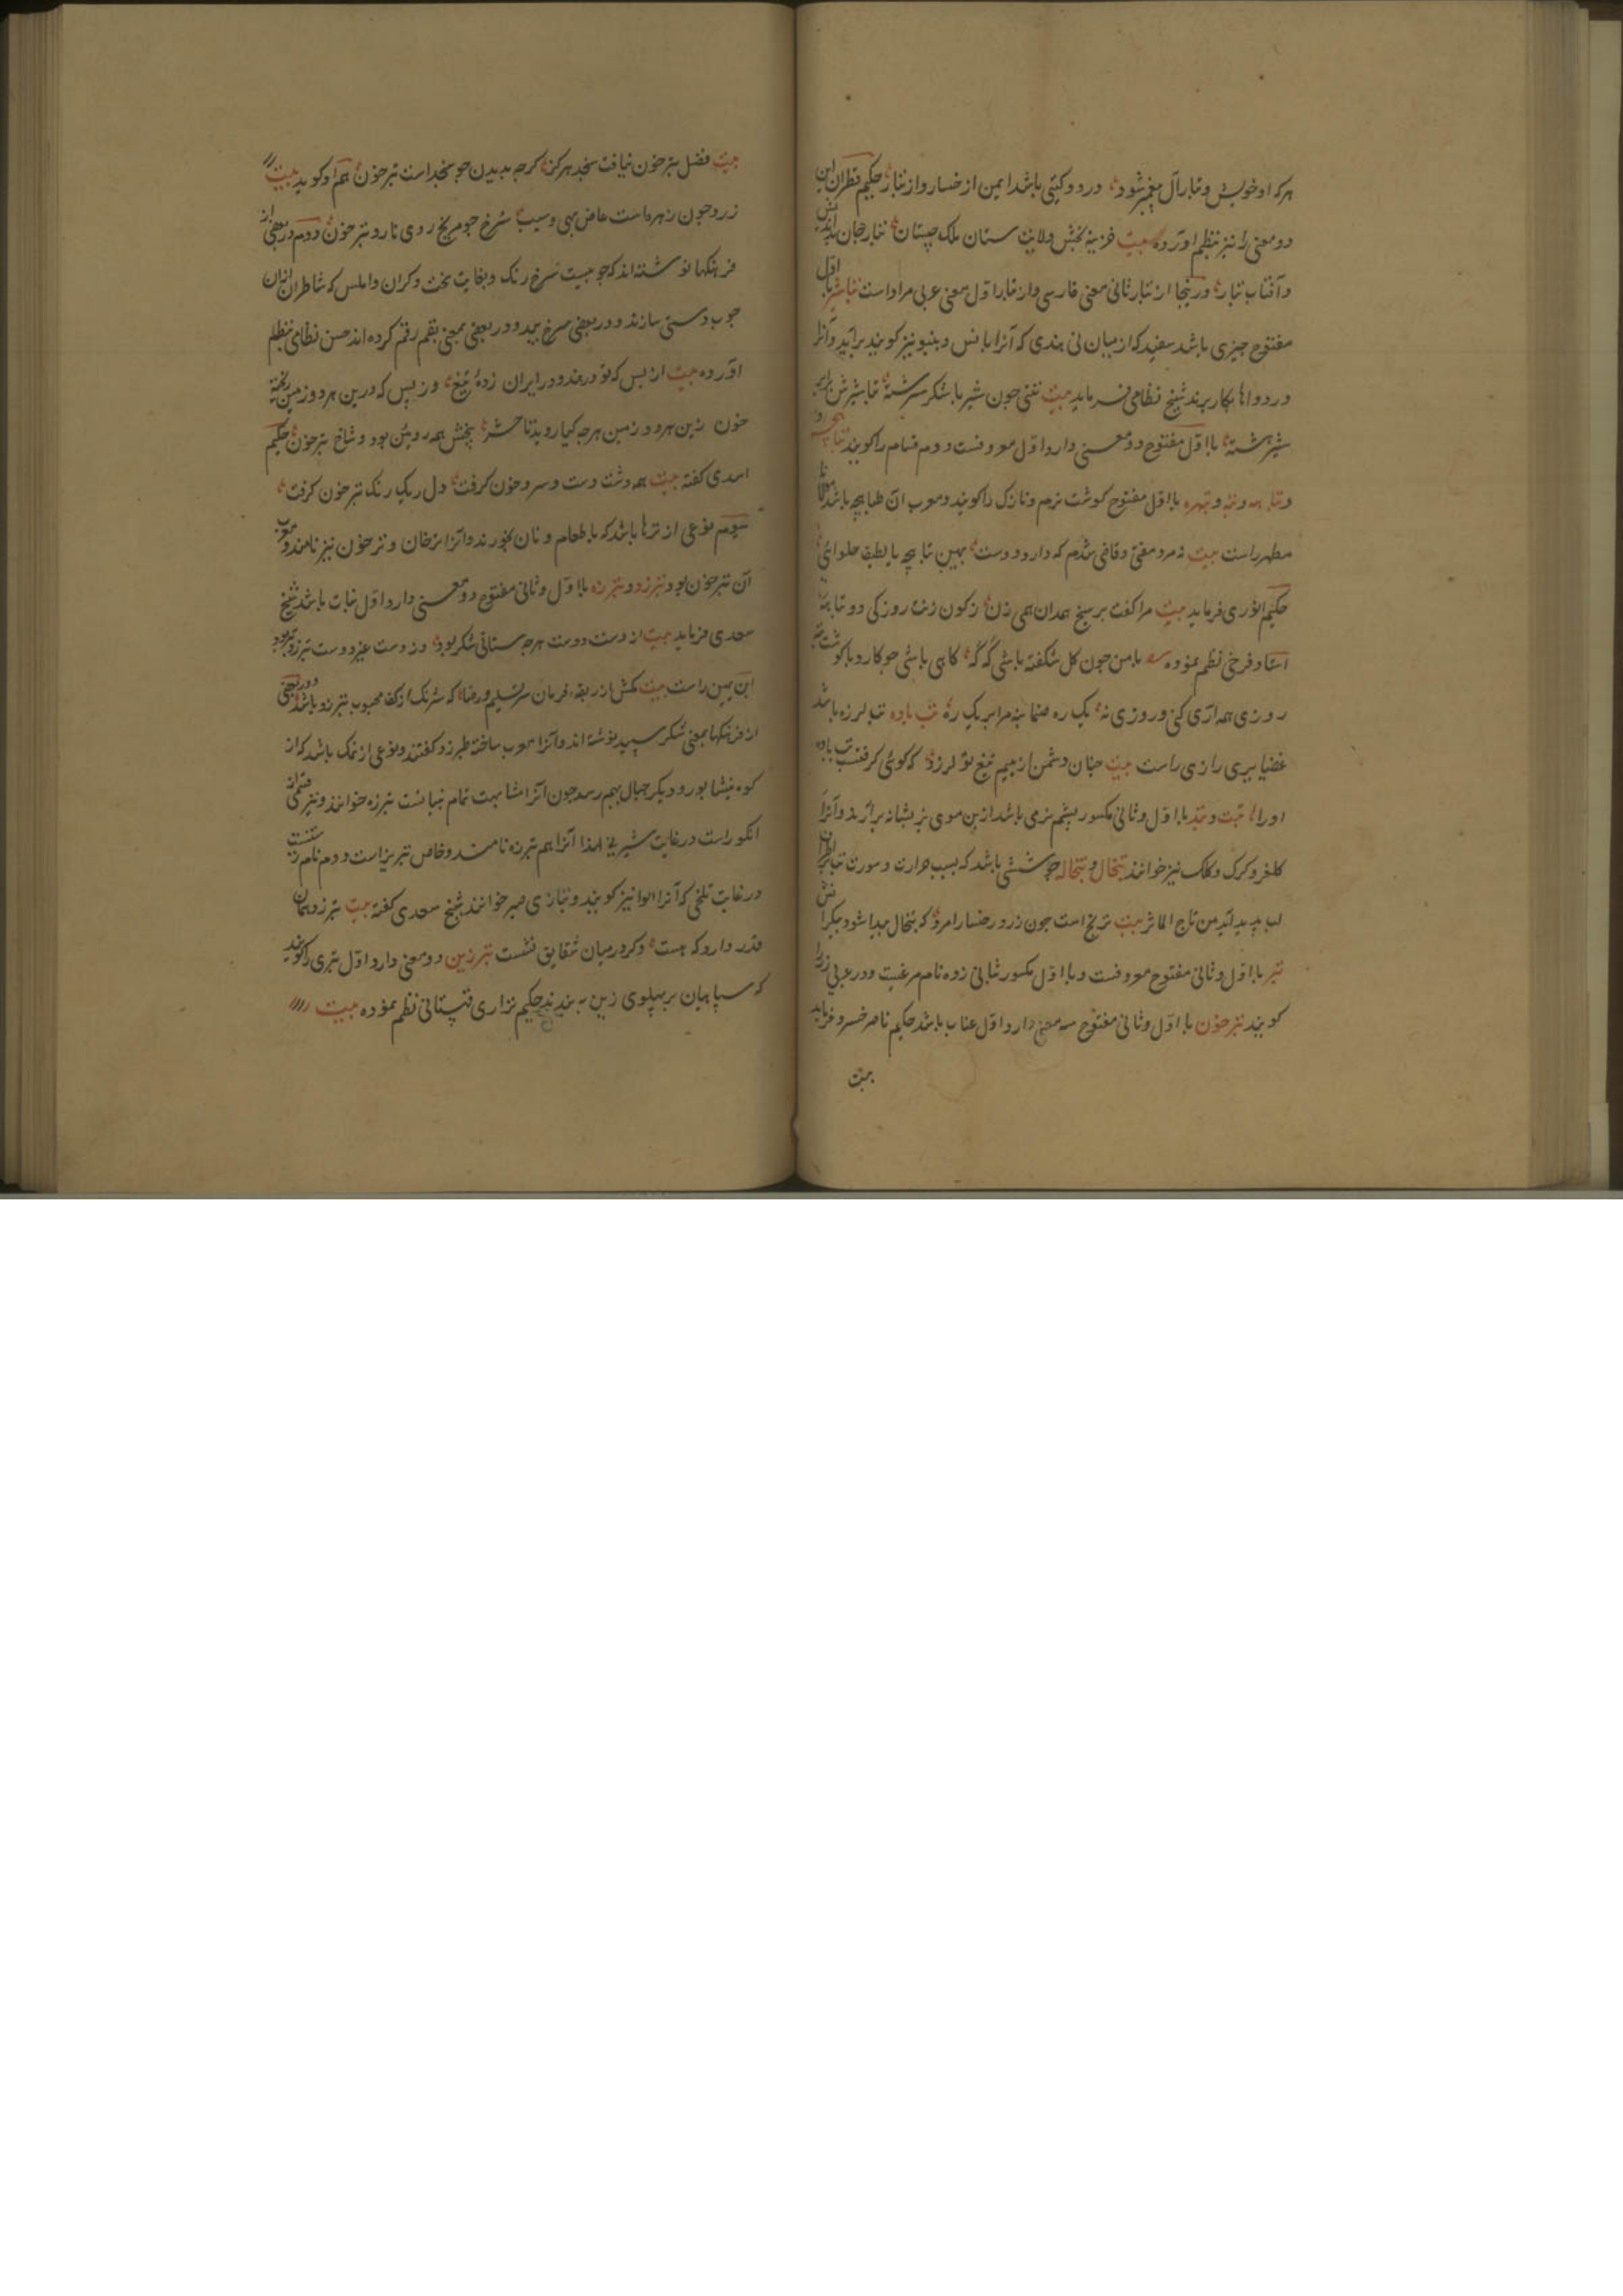 هرکه او خویش و تبار آل پیغمبر شود در دو کیتی باشد ایمن از خسار و از تبار حکیم قطران این
دو معنی را نیز بنظم آورده بیت خزینه بخش ولایت ستان ملک
و آفتاب تبار و درینجا از تبار ثانی معنی فارسی و از تبار اول معنی عربی مراد است تباشیر با اول
مفتوح چیزی باشد سفید که از میان نی هندی که آنرا بانس و بنبو نیز کویند برآید و آنرا
در دواها بکار برند شیخ نظامی فرماید بیت تنی چون شیر با شکر سرشته تباشیرش برابر
شیر هشته با اول مفتوح دو معنی دارد اول معروفست دوم قسام را کویند تباهچه و
و تباهه و تبه و تبهره با اول مفتوح کوشت نرم و نازک را کویند و معرب آن طباهچه باشد مولانا
مطهر راست بیت نه مرد مفتی و قاضی شدم که دارد دوست بهین تباهچه با لطیف حلوائی
حکیم انوری فرماید بیت مرا کفت بر سیخ همدان همی زن
استاد فرخی نظم نموده با من چون کل شکفته باشی که که کاهی باشی چو کارد با کوشت تبه
روزی همه آری کنی و روزی نه یک ره صنما بنه مرا بر یک ره تب باده تب لرزه باشد
غضایری رازی راست بیت چنان دشمن از بیم تیغ تو لرزد که کوئی کرفتست تب باده
او را تبت و تبد با اول و ثانی مکسور پشم نرمی باشد از بن موی بز بشانه برآرند و آنرا
کلغر و کرک و کلک نیز خوانند تبخال و تبخاله جوششی باشد که بسبب حرارت و سورت تب بر اطراف
لب پدید آید من تاج المآثر بیت ترنج است چون زرد رخسار امرود که تبخال پیدا شود بیکرانش
تبر با اول و ثانی مفتوح معروفست و با اول مکسور بثانی زده نام مرغیست و در عربی زر را
کویند تبرخون با اول و ثانی مفتوح سه معنی دارد اول عناب باشد حکیم ناصر خسرو فرماید
بیت
بیت فضل تبرخون نیافت سنجد هرکز کرچه بدیدن چو سنجد است تبرخون هم او کوید بیت
زرد چون زهره است عارض بهی و سیب سرخ چو مریخ روی نار و تبرخون دوم در بعضی از
فرهنکها نوشته اند که چوبیست سرخ رنک و بغایت سخت و کران و املس که شاطران از آن
چوب دستی سازند و در بعضی سرخ بید و در بعضی بمعنی بقم رقم کرده اند حسن نظامی بنظم
آورده بیت از بس که تو در هند و در ایران زده تیغ وز بس که درین هر دو زمین ریخته
خون زین هر دو زمین هرچه کیا روید تا حشر بیخش همه روین بود و شاخ تبرخون حکیم
اسدی کفته بیت همه دشت دست و سر و خون کرفت دل ریک رنک تبرخون کرفت
سوم نوعی از ترها باشد که با طعام و نان بخورند و آنرا ترخان و ترخون نیز نامند و معرب
آن تبرخون بود تبرزد و تبرزه با اول و ثانی مفتوح دو معنی دارد اول نبات باشد شیخ
سعدی فرماید بیت از دست دوست هرچه ستانی شکر بود وز دست غیر دوست تبرزد تبر بود
ابن یمین راست بیت مکش از ربقه فرمان سر تسلیم و رضا که شرنک از کف محبوب تبرزد باشد و در بعضی
از فرهنکها بمعنی شکر سپید نوشته اند و آنرا معرب ساخته طبرزد کفتند و نوعی از نمک باشد که از
کوه نیشابور و دیکر جبال بهم رسد چون آنرا مشابهت تمام بنباتست تبرزه خوانند و نیز قسمی از
انکور است در غایت شیرینی لهذا آنرا هم تبرزه نامند و خاص تبریز است و دوم نام رستنیست
در غایت تلخی که آنرا الوا نیز کویند و بتازی صبر خوانند شیخ سعدی کفته بیت تبرزد همان
قدر دارد که هست وکر در میان شقایق نشست تبرزین دو معنی دارد اول تبری را کویند
که سپاهیان بر پهلوی زین بندند حکیم نزاری قهستانی نظم نموده بیت